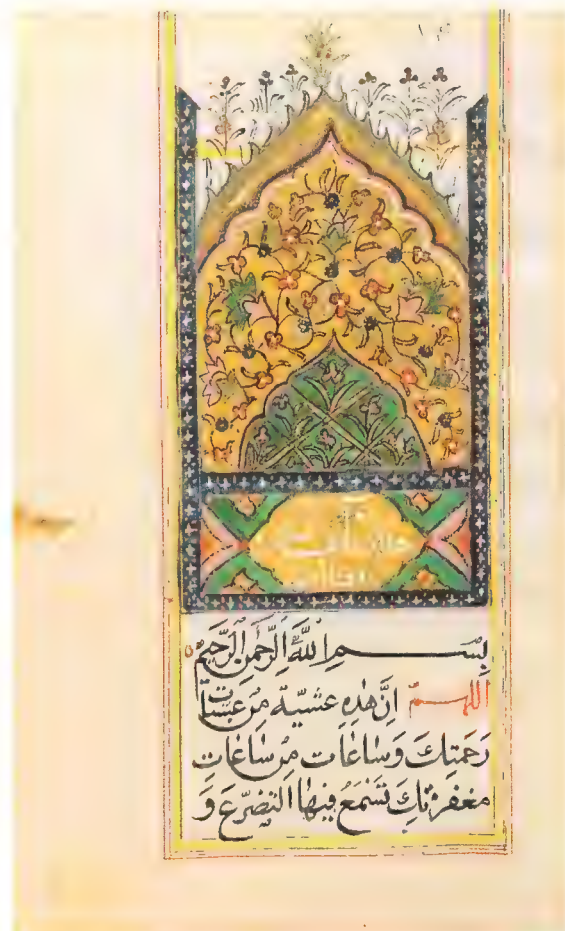 بِسْمِ اللهِ الرَّحْمٰنِ الرَّحِيْمِ
اللهم اِنَّ هٰذِهِ عَشيّة مِن عَشيّات
رَحمَتِكَ وَسٰاعٰات مِنْ سٰاعٰاتِ
مغفرتِكَ تَسْمَعُ فِيهٰا التضرّعَ وَ